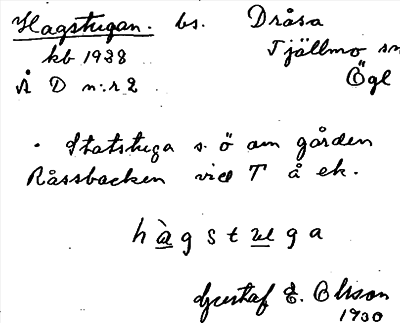 Hagstugan. bs. Dråsa
kb 1938 Tjällmo sn
Å D n:r 2 Ögl
. Statstuga s. ö om gården
Råssbacken vid T å ek.
hàgstuga
Gustaf E. Olsson
1930